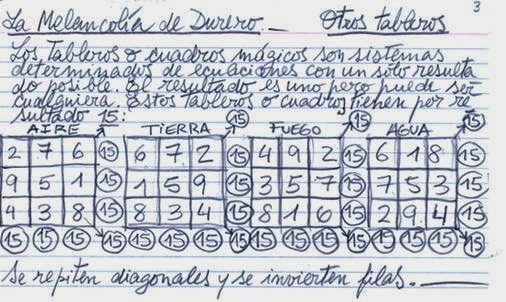 3
La Melancolía de Durero.- Otros tableros
Los Tableros o cuadros mágicos son sistemas
determinados de ecuaciones con un sólo resulta
do posible. El resultado es uno pero puede ser
cualquiera. Estos Tableros o cuadros tienen por re
sultado 15: 15 15 15 15
AIRE TIERRA FUEGO AGUA
2 7 6 15 6 7 2 15 4 9 2 15 6 1 8 15
9 5 1 15 1 5 9 15 3 5 7 15 7 5 3 15
4 3 8 15 8 3 4 15 8 1 6 15 2 9 4 15
15 15 15 15 15 15 15 15 15 15 15 15 15 15 15 15
Se repiten diagonales y se invierten filas.